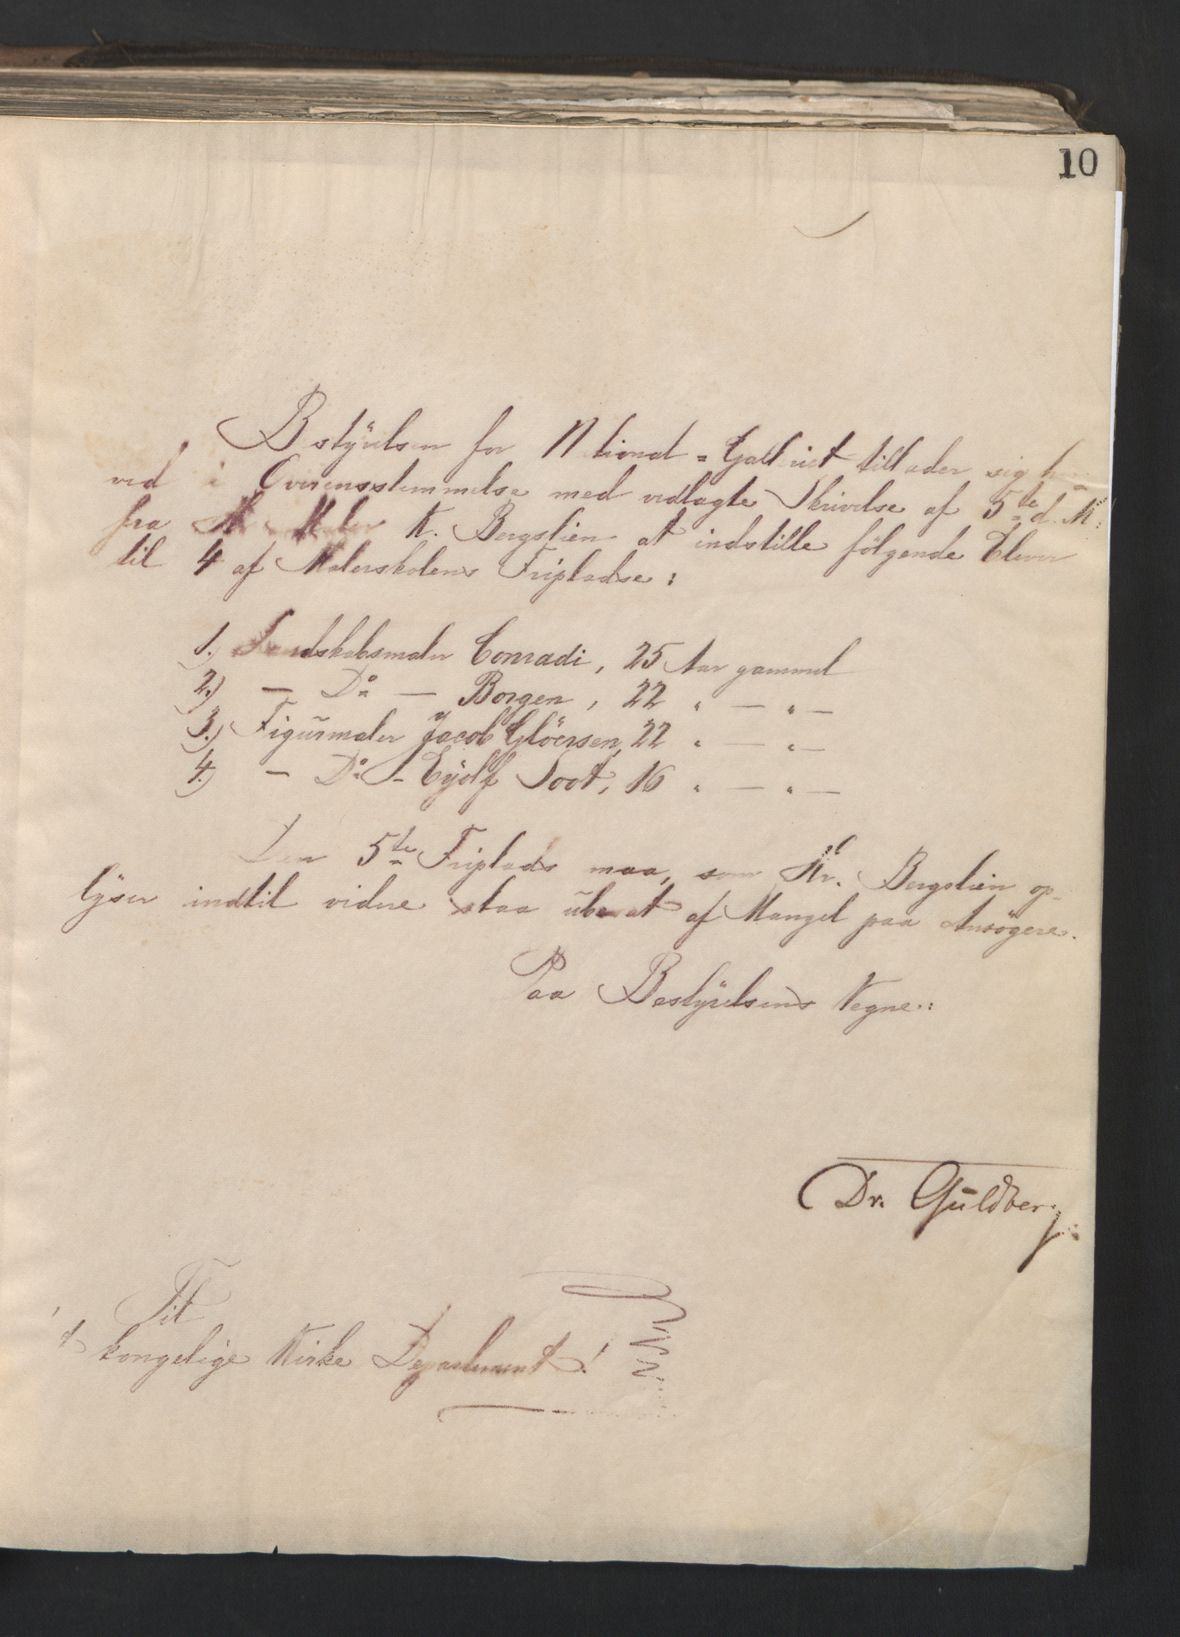 10
Bestyrelsen for National-Galleriet tillader sig her-
ved i Overensstemmelse med vedlagte Skrivelse af 5te d. M:
fra Hr. Maler K. Bergslien at indstille følgende Elever
til 4 af Malerskolens Fripladse:
1.) Landskabsmaler Conradi, 25 Aar gammel
2.) — Do — Borgen, 22 " — " —
3.) Figurmaler Jacob Gløersen, 22 " — " —
4.) — Do — Eyolf Soot, 16 " — " —
Den 5te Friplads maa, som Hr. Bergslien op-
lyser indtil videre staa ubesat af Mangel paa Ansøgere.
Paa Bestyrelsens Vegne:
Dr. Guldberg.
Til
t kongelige Kirke Departement!